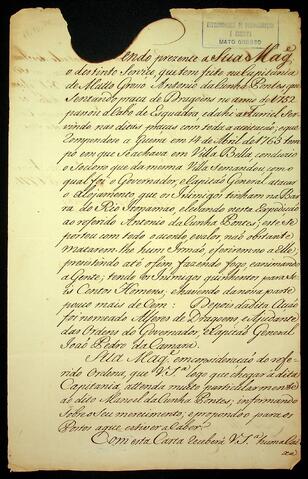 MATO GROSSO
endo prezente a Sua Mag.
o destinto Servço, que tem feito na Capitania
de Matto Groço Antonio da Cunha Pontes, que
Sentando praça de Dragoens no anno de 1752
pasou a Cabo de Esquadra, e dahi a Furriel, Ser
vindo nas ditas praças com toda a
a Guerra em 14 de Abril de 1763 tem
po em que Se achava em Villa Bella, conduzio
o Socorro que da mesma Villa Se mandou, com o
qual foi o Governador, e Capitaõ General atacar
o Alojamento, que os Inimigos tinhaõ na Bar
ra do Rio Itenamas, e levando nesta Expediçaõ
ao referido Antonio da Cunha Pontes; este Se
portou com todo o exforço e valor, naõ obstante
matarem lhe hum Irmaõ, e
prezistindo até o fim fazendo fogo, e animando
a Gente; tendo os Inimigos quinhentos para Se
is Centos Homens, e havendo da nossa parte
pouco mais de Cem: Depois da dita Acçaõ
foi nomeado Alferes de Dragoens, e Ajudante
das Ordens do Governador, e Capitaõ General
Joaõ Pedro da Camara.
Sua Mag. em consideraçaõ do refe
rido Ordena, que V. S.ª logo que chegar á dita
Capitania, attenda muito particularmente
ao dito Manoel da Cunha Pontes; informando
Sobre o Seu merecimento, e propondo-o para os
Postos a que estiver a caber.
Com esta Carta receberá V. S.ª huma